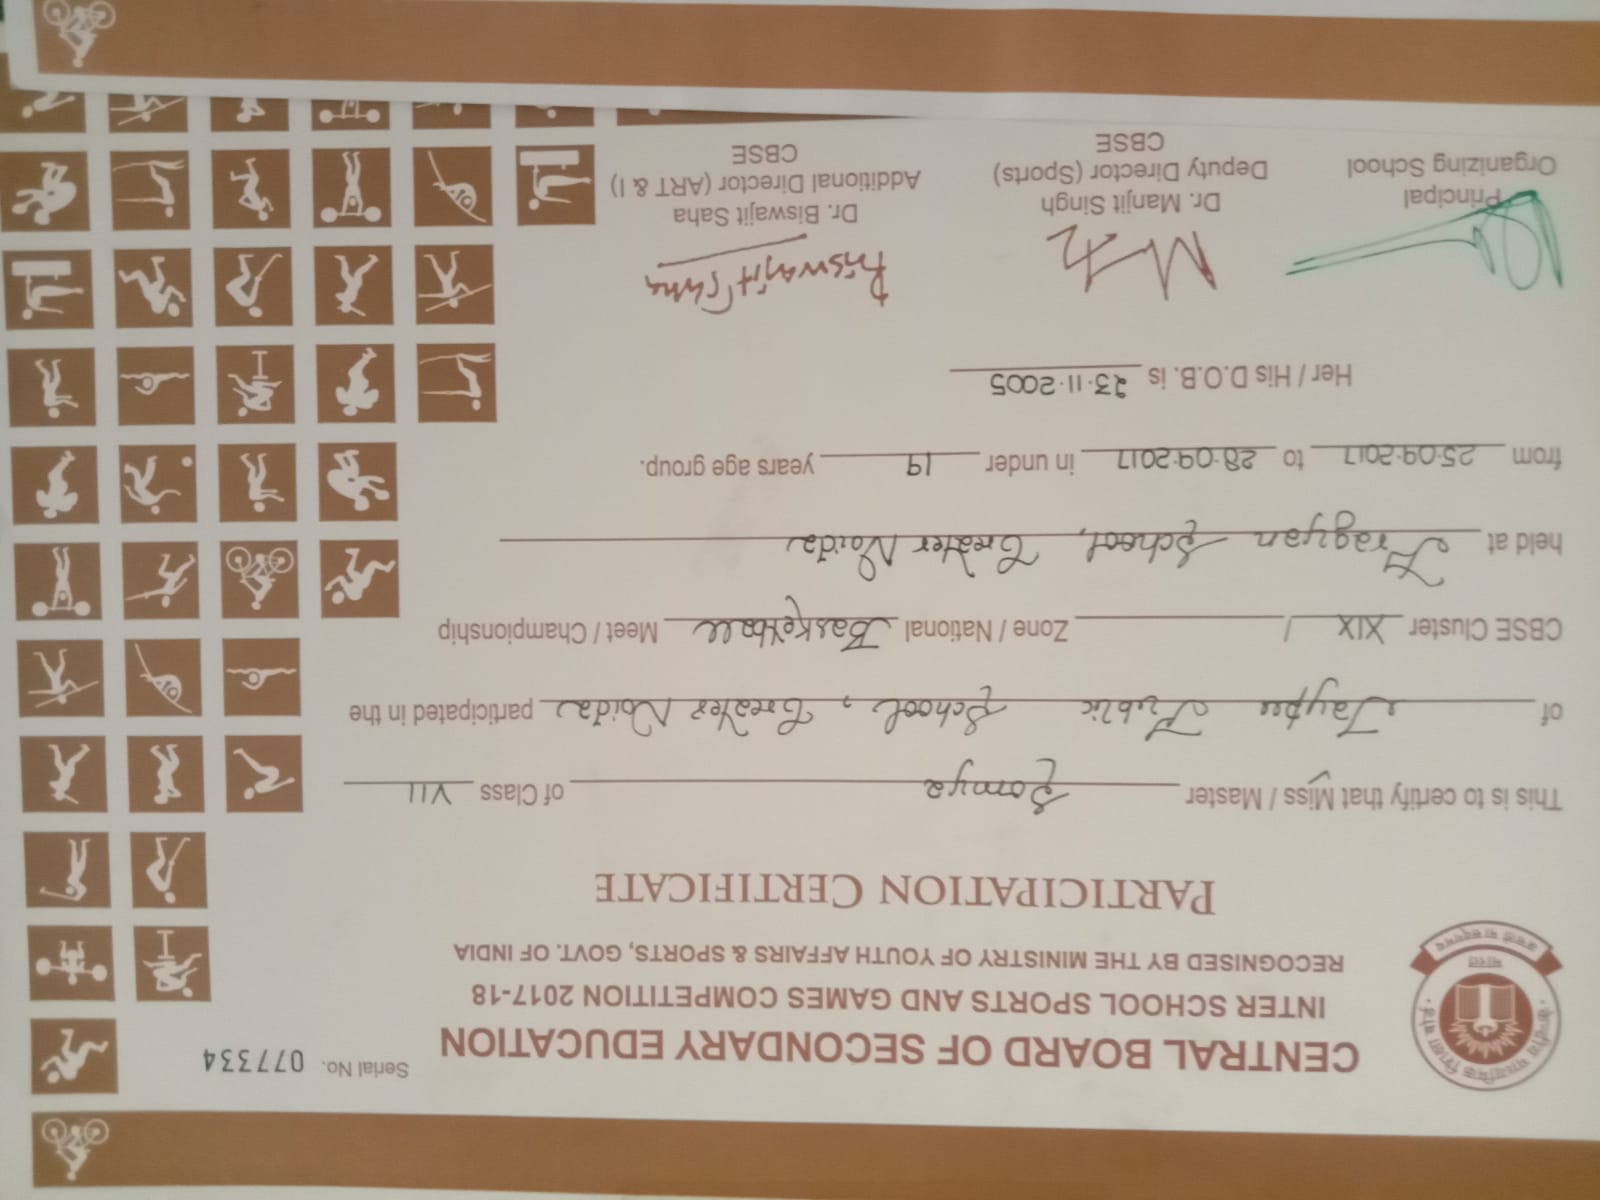 Serial No. 077334
CENTRAL BOARD OF SECONDARY EDUCATION
INTER SCHOOL SPORTS AND GAMES COMPETITION 2017-18
RECOGNISED BY THE MINISTRY OF YOUTH AFFAIRS & SPORTS, GOVT. OF INDIA
केन्द्रीय माध्यमिक शिक्षा बोर्ड
भारत
असतो मा सद्गमय
PARTICIPATION CERTIFICATE
This is to certify that Miss / Master Somya of Class VII
of Jaypee Public School, Greater Noida participated in the
CBSE Cluster XIX / Zone / National Basketball Meet / Championship
held at Pragyan School, Greater Noida
from 25.09.2017 to 28.09.2017 in under 19 years age group.
Her / His D.O.B. is 23.11.2005
Biswajit Saha
Principal
Organizing School
Dr. Manjit Singh
Deputy Director (Sports)
CBSE
Dr. Biswajit Saha
Additional Director (ART & I)
CBSE